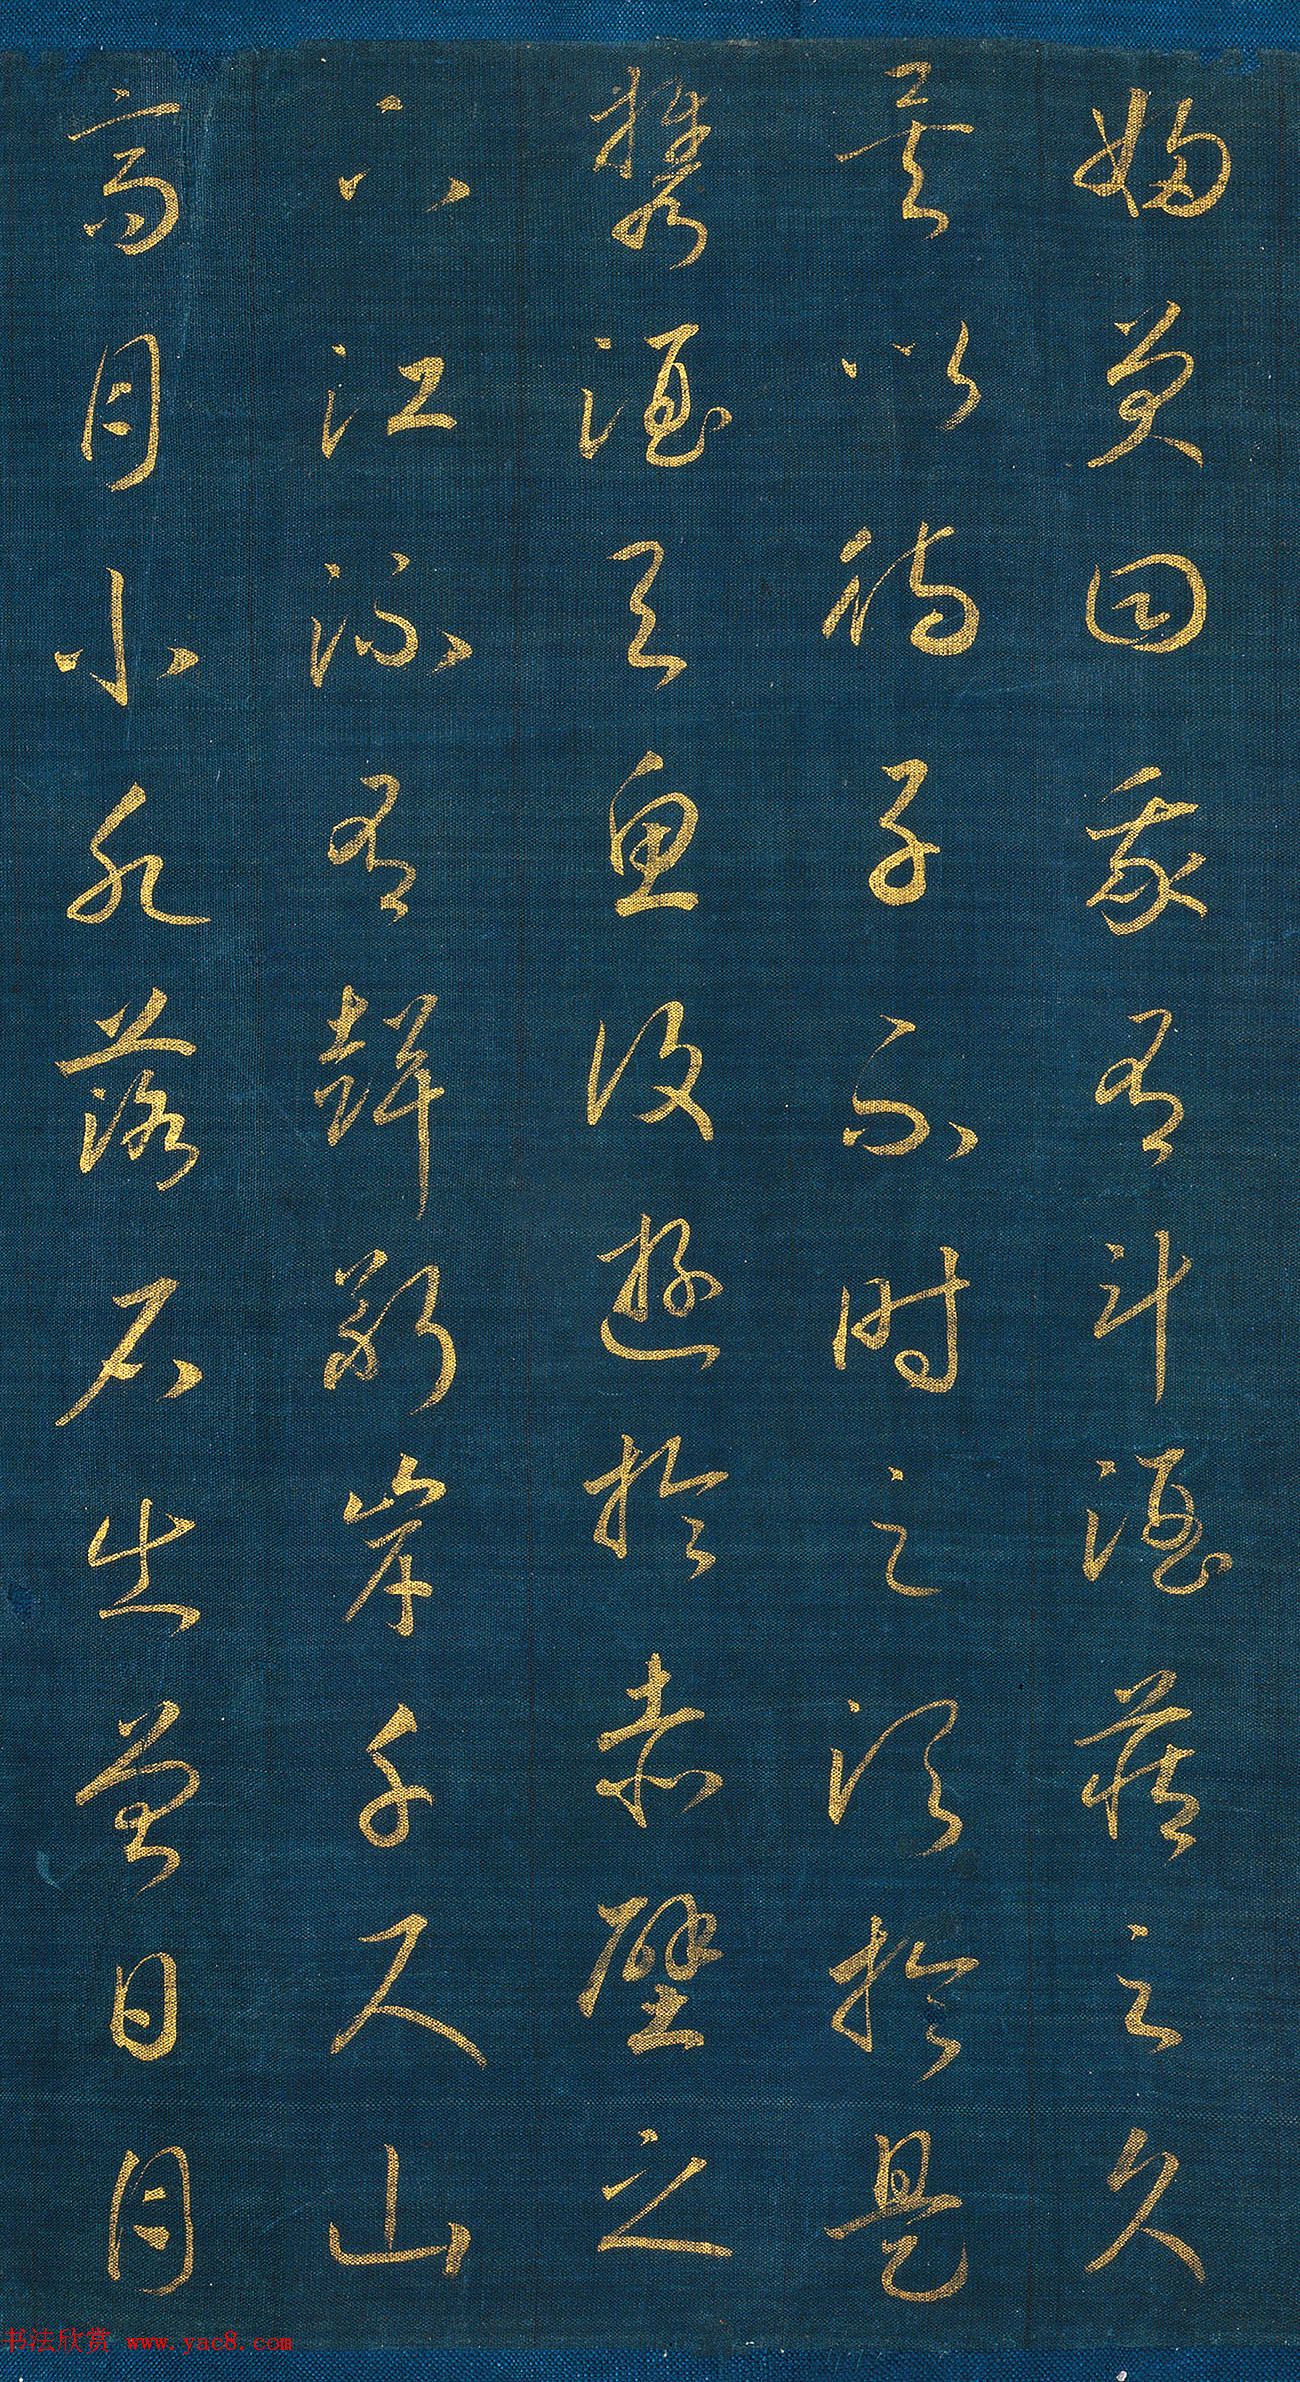 婦莫曰我有斗酒藏之久
矣以待子不時之須於是
攜酒與魚復遊於赤壁之
下江流有聲斷岸千尺山
高月小水落石出曾日月
书法欣赏 www.yac8.com